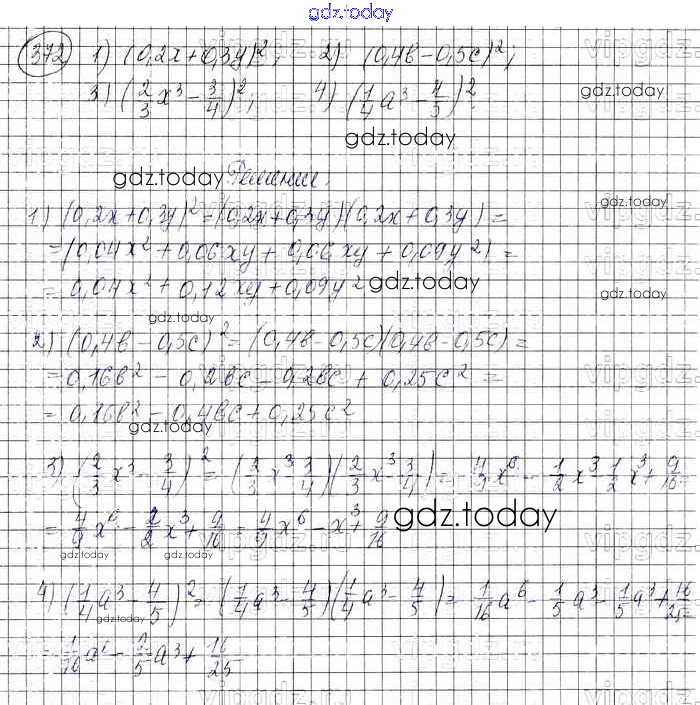 gdz.today
372 1) (0,2x+0,3y)²; 2) (0,4b-0,5c)²;
3) (2/3 x³ - 3/4)²; 4) (1/4 a³ - 4/5)²
gdz.today
gdz.today
gdz.today Решение.
gdz.today
1) (0,2x+0,3y)²=(0,2x+0,3y)(0,2x+0,3y)=
=(0,04x²+0,06xy+0,06xy+0,09y²)=
=0,04x²+0,12xy+0,09y² gdz.today
gdz.today
gdz.today
2) (0,4b-0,5c)²=(0,4b-0,5c)(0,4b-0,5c)=
=0,16b²-0,2bc-0,2bc+0,25c²=
=0,16b²-0,4bc+0,25c²
gdz.today
3) (2/3 x³ - 3/4)² = (2/3 x³ - 3/4)(2/3 x³ - 3/4) = 4/9 x⁶ - 1/2 x³ - 1/2 x³ + 9/16 =
= 4/9 x⁶ - 2/2 x³ + 9/16 = 4/9 x⁶ - x³ + 9/16 gdz.today
gdz.today gdz.today
4) (1/4 a³ - 4/5)² = (1/4 a³ - 4/5)(1/4 a³ - 4/5) = 1/16 a⁶ - 1/5 a³ - 1/5 a³ + 16/25 =
gdz.today
= 1/16 a⁶ - 2/5 a³ + 16/25